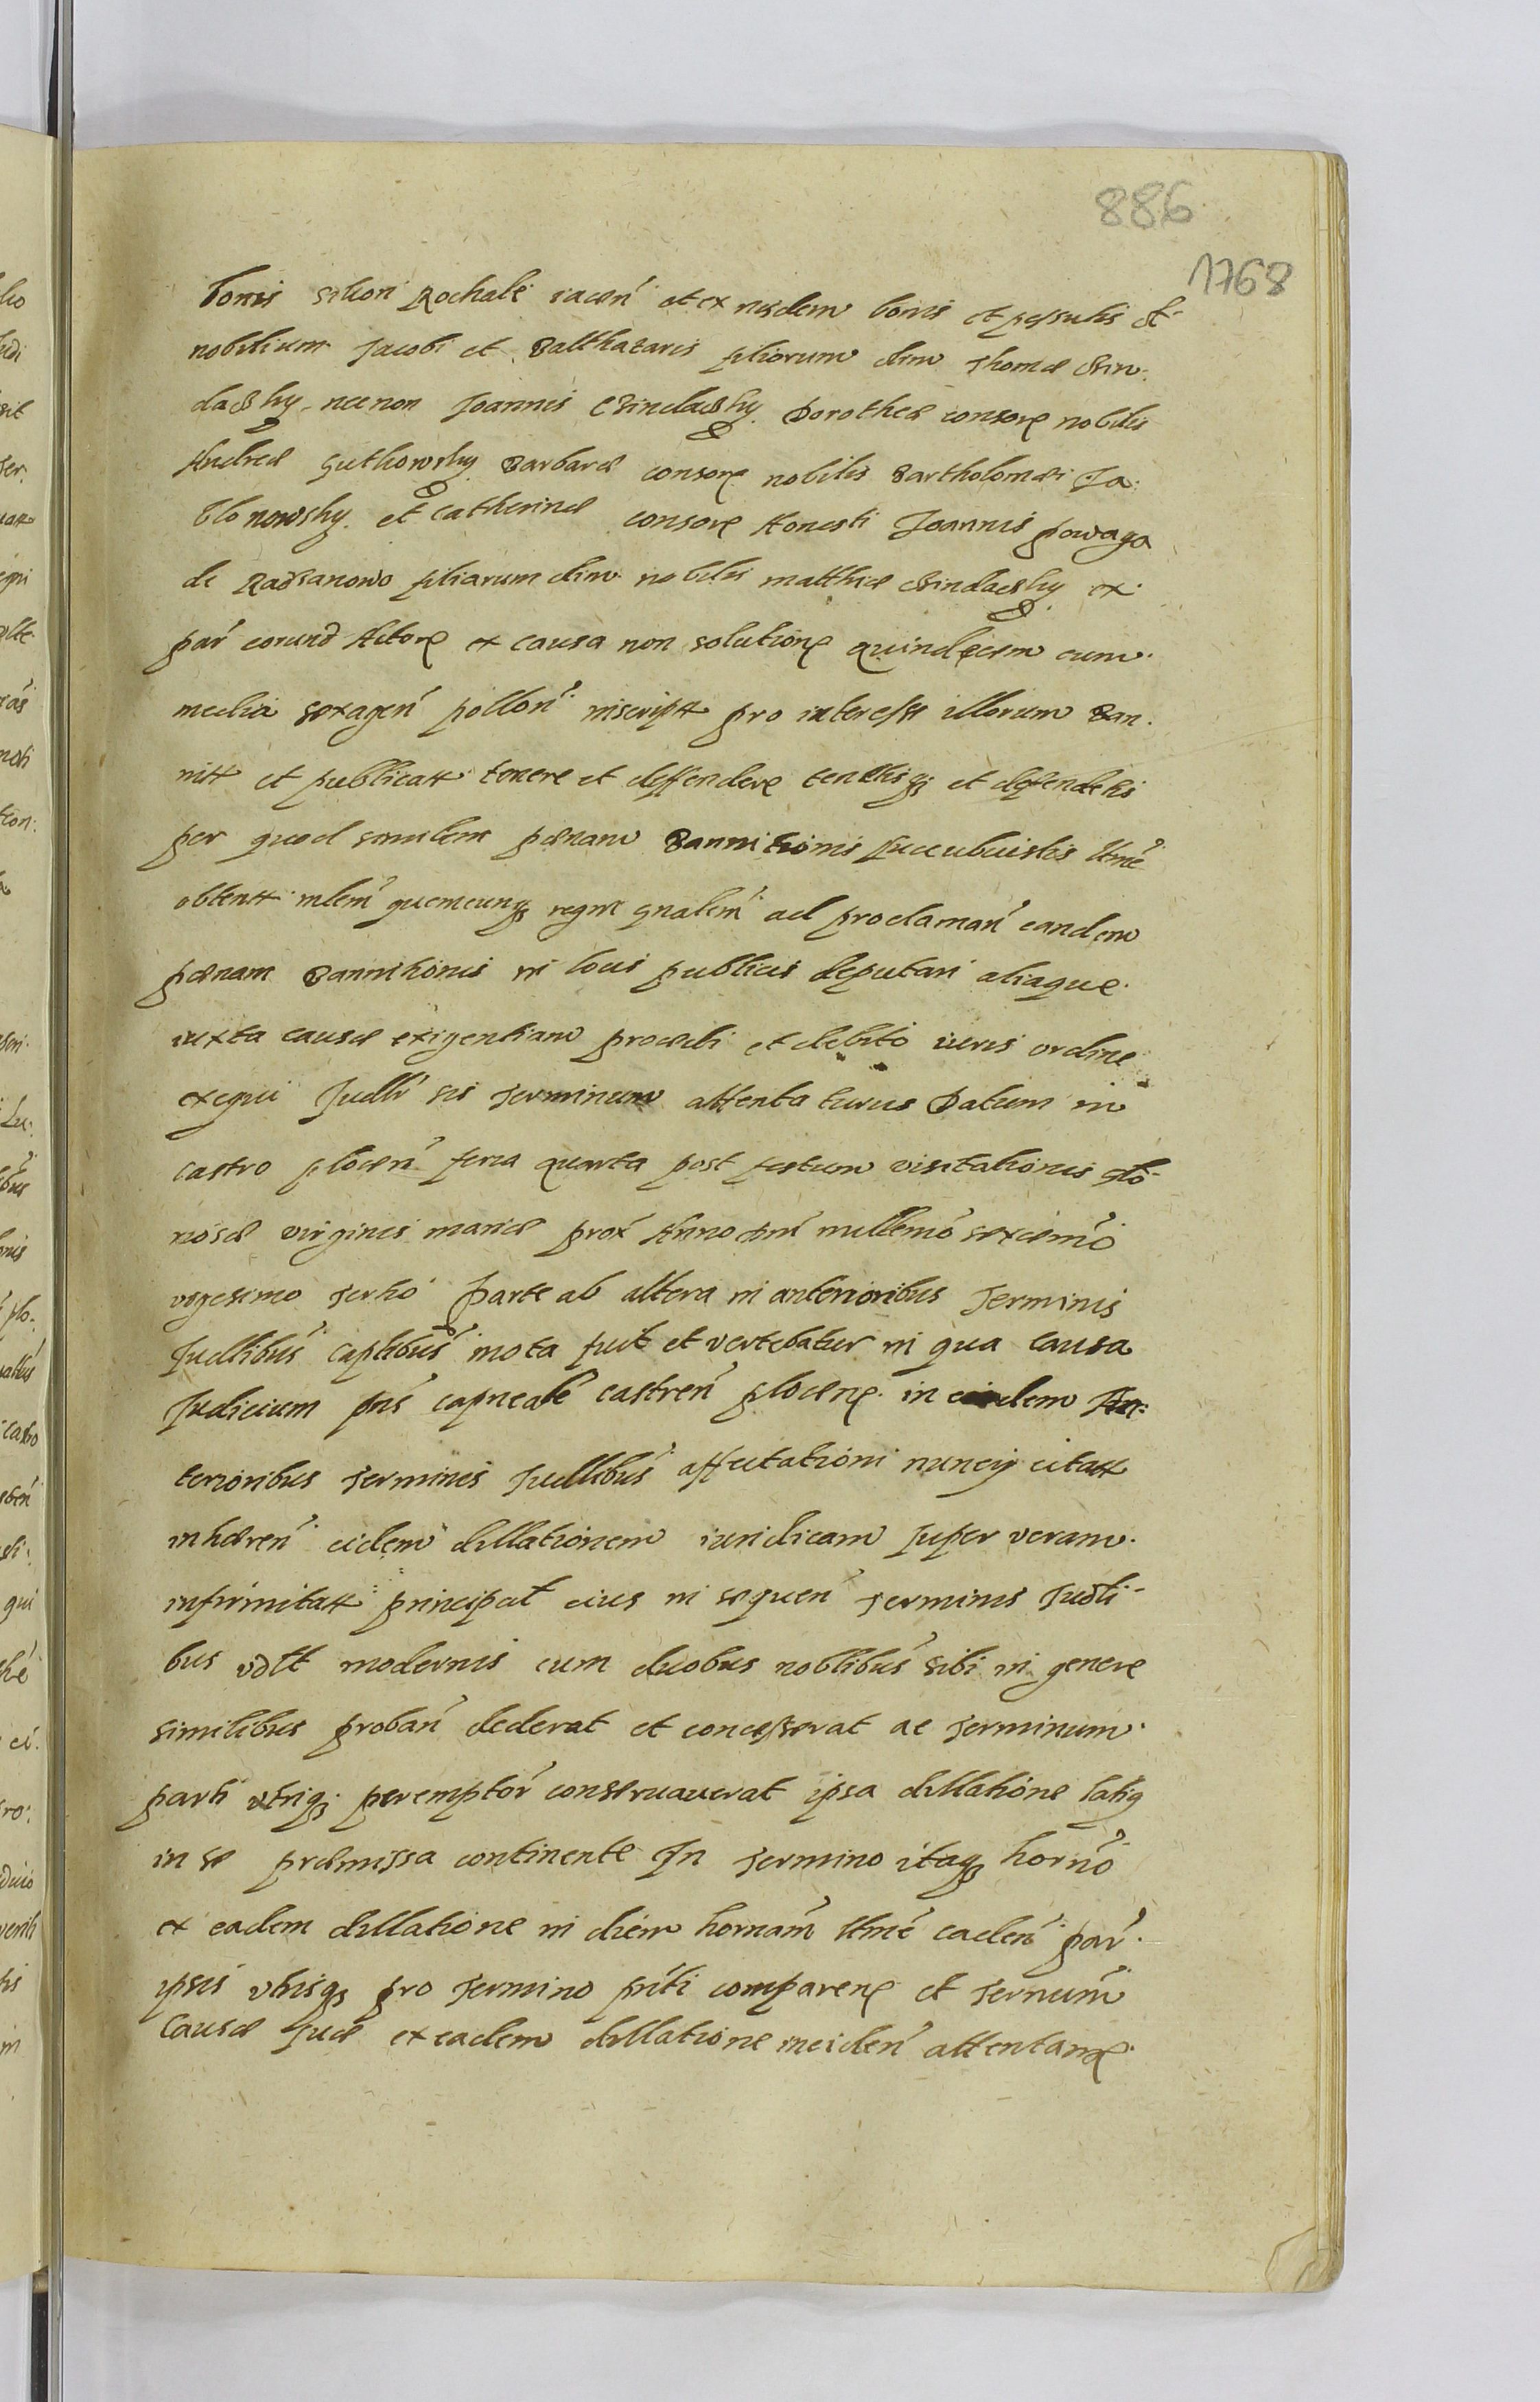 886
1768
bonis sition Rochale iacen̄ et ex iisdem bonis et pessulis et
nobilium Jacobi et Balthazaris filiorum olim Thomæ
nec non Joannis Dorotheæ consor nobilis
Andreæ Guthowsky Barbaræ consor nobilis Bartholomæi Ja:
blonowsky et Catherinæ consor Honesti Joannis Powaga
de Radzanowo filiarum olim nobilis Matthiæ ex
par̄ eorund Actor ex causa non solutione quindecem cum
media sexagen̄ pollon̄ inscriptt pro interesse illorum Ban:
nitt et publicatt tenere et deffendere tenetisq et defendetis
per quod similem pænam Bannitionis succubuistis ltmē
obtentt mlem̄ quemcunq regni gnalem̄ ad proclaman̄ eandem
pænam Bannitionis in locis publicis deputari aliaque
iuxta causæ exigentiam procedi et debito iuris ordine
exequi Judlr̄ sis Terminum attentaturus Datum in
castro plocen̄ feria quarta post festum visitationis glo-
riosæ virginis mariæ prox̄ Anno Dni millemō sexcemō
vigesimo tertio Parte ab altera in anterioribus Terminis
Judlibus̄ caplibus̄ mota fuit et vertebatur in qua causa
Judicium pns̄ capneale castren̄ plocen in eisdem An:
terioribus Terminis Judlibus̄ affectationi nuncij citatt
inhæren̄ eidem dillationem iuridicam super veram
infirmitatt principal eius in sequen̄ Terminis Judli-
bus vdtt modernis cum duobus noblibus̄ sibi in genere
similibus proban̄ dederat et concesserat ac Terminum
parti vtriq peremptor̄ conservauerat ipsa dillatione latiq
in se præmissa continente In Termino itaq hornō
ex eadem dillatione in diem hornam̄ ltmē caden̄ par̄
ipsis vtrisq pro Termino pnti comparen et Ternum̄
Causæ suæ ex eadem dillatione inciden̄ attentan